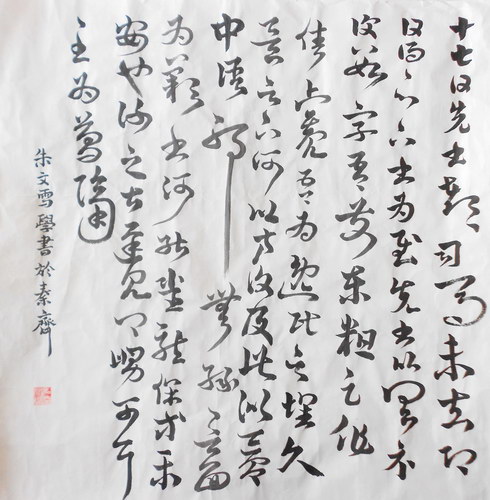 十七日先書郗司馬未去即
日得足下書為慰先書以具示
復數字吾前東粗足作
佳觀吾為逸民之懷久
矣足下何以方復及此似夢
中語耶無緣言面
為歎書何能悉龍保等平
安也謝之甚遲見卿舅可耳
至為簡隔
朱文雪學書於秦齊